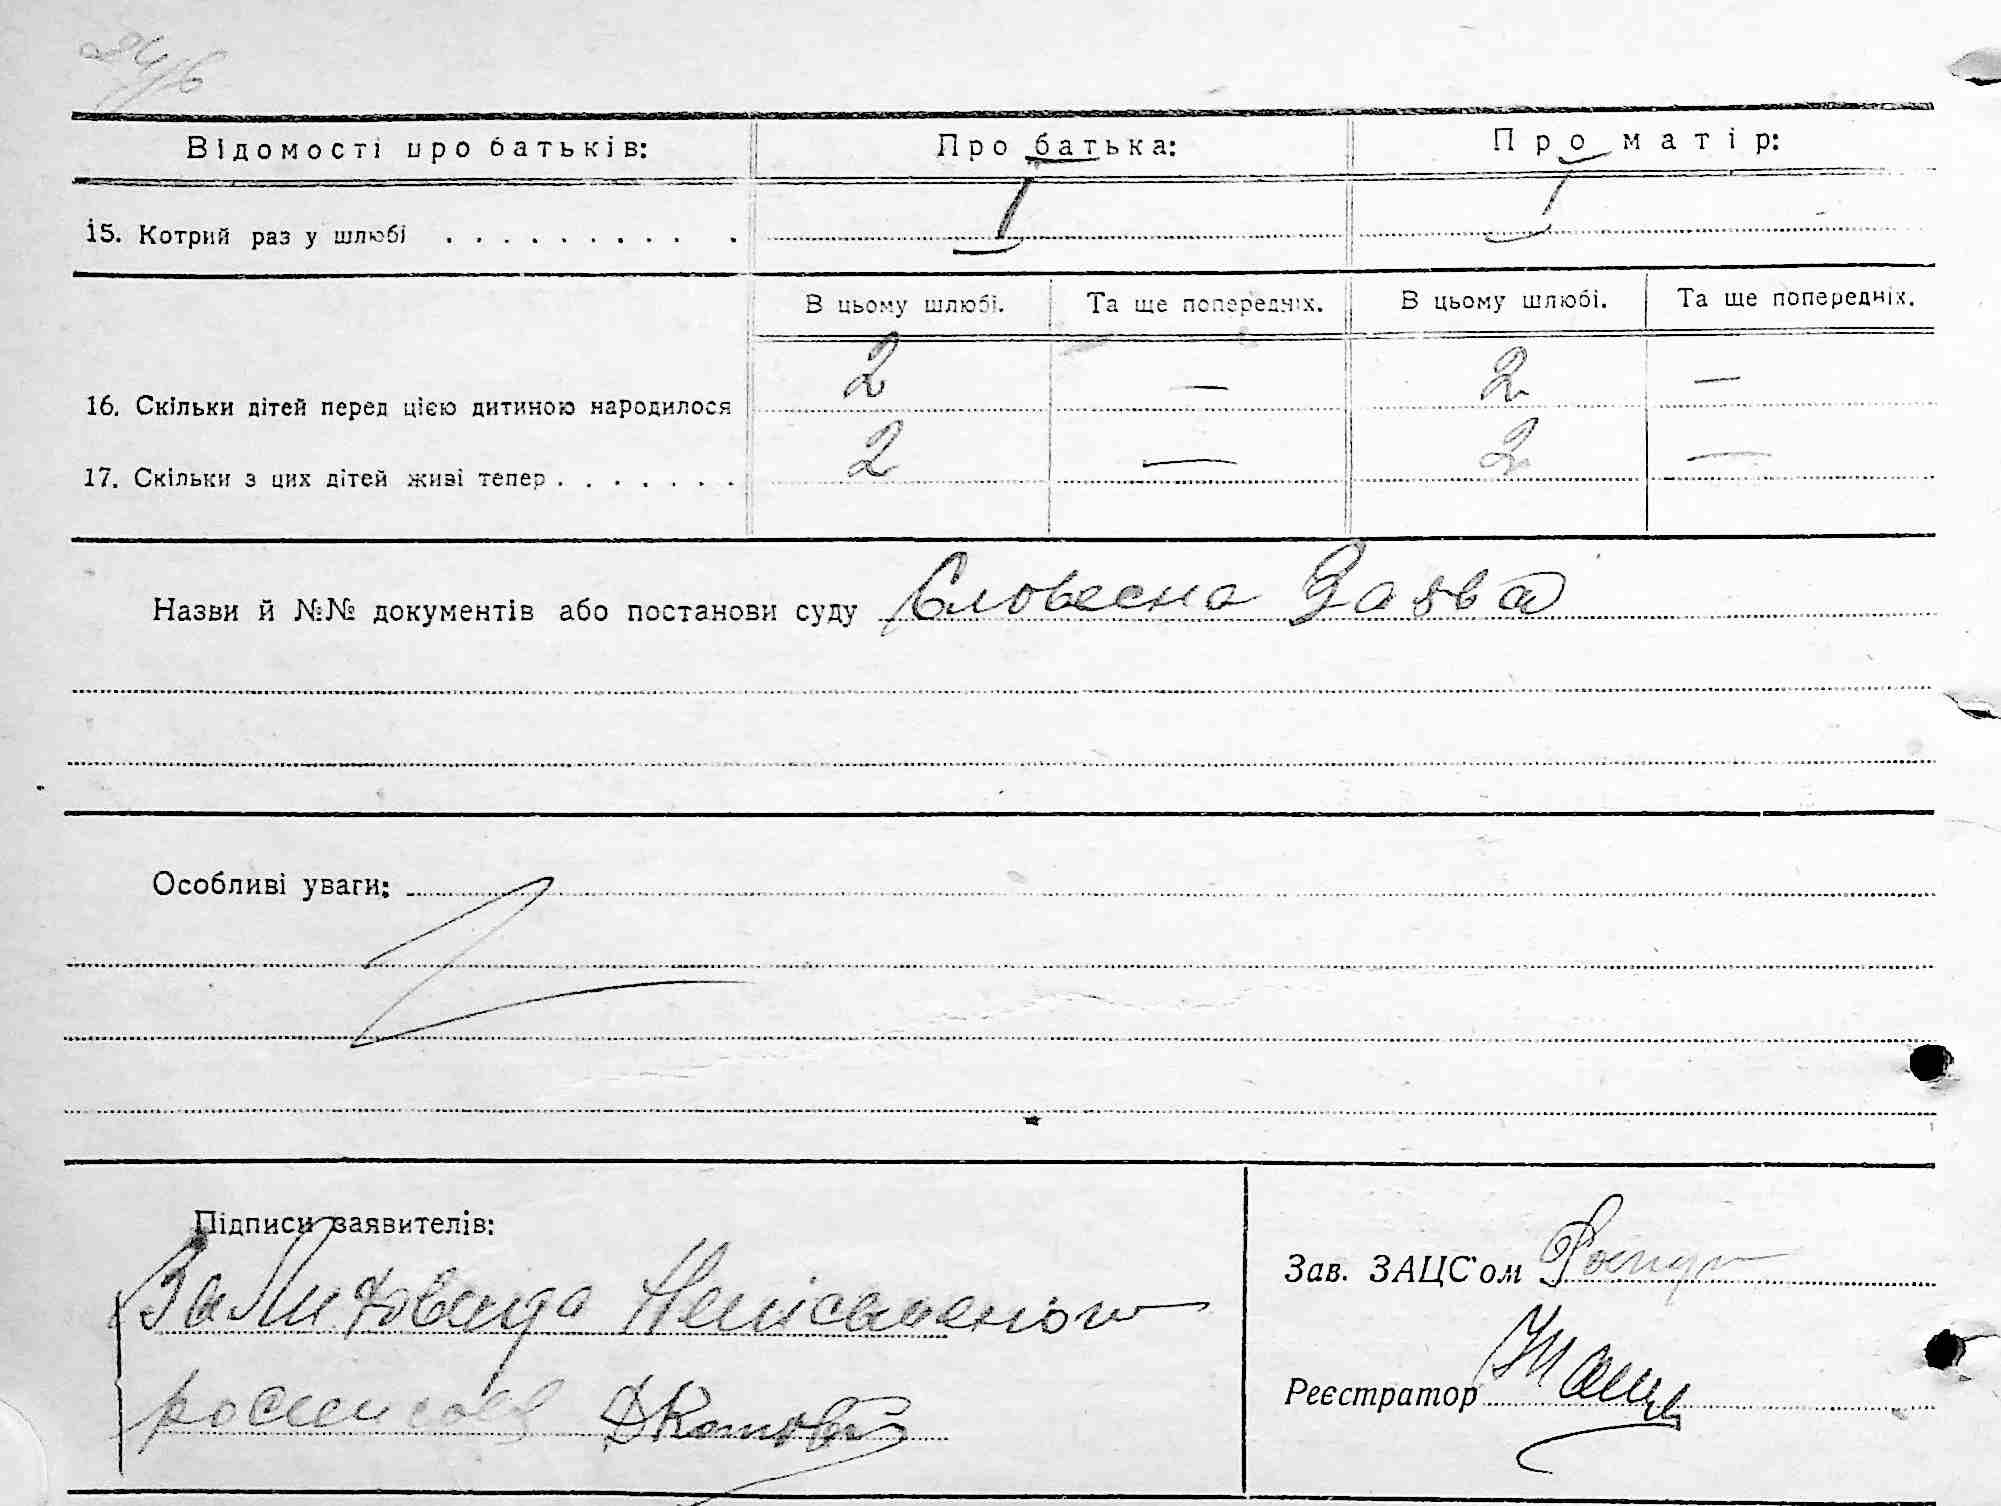 Відомості про батьків: Про батька: Про матір:
15. Котрий раз у шлюбі . . . . . . . . . . I I
В цьому шлюбі. Та ще попередніх. В цьому шлюбі. Та ще попередніх.
16. Скільки дітей перед цією дитиною народилося 2 — 2 —
17. Скільки з цих дітей живі тепер . . . . . . . 2 — 2 —
Назви й №№ документів або постанови суду Словесна Заява
Особливі уваги:
Підписи заявителів:
За Неписьменого
Зав. ЗАЦС'ом
росписався
Реєстратор